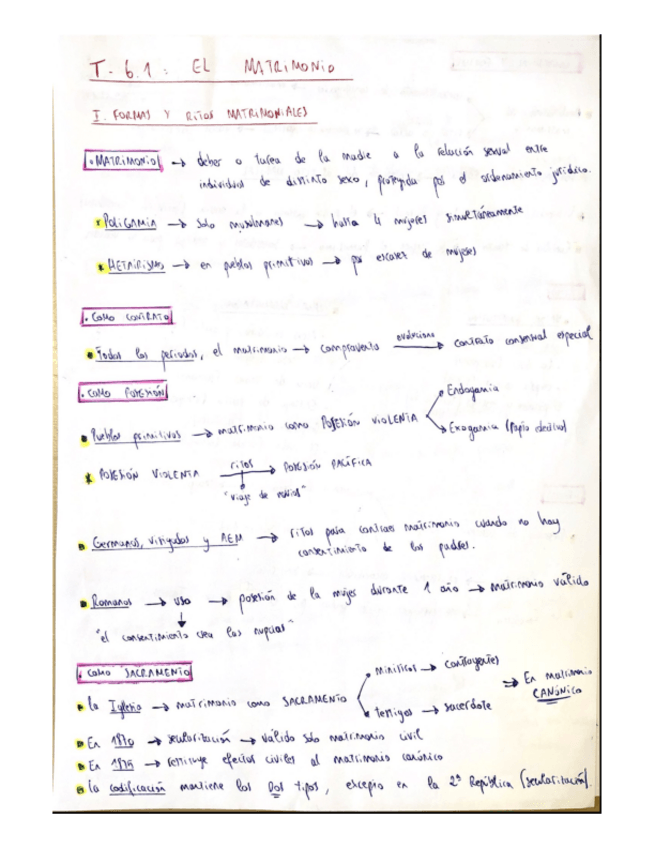 T-6.1: EL MATRIMONIO
I. FORMAS Y RITOS MATRIMONIALES
• MATRIMONIO → deber o tarea de la madre o la relación sexual entre
individuos de distinto sexo, protegida por el ordenamiento jurídico.
* POLIGAMIA → solo musulmanes → hasta 4 mujeres simultáneamente
* HETAIRISMO → en pueblos primitivos → por escasez de mujeres
• COMO CONTRATO
• Todos los periodos, el matrimonio → compraventa evoluciona → contrato consensual especial
• COMO POSESIÓN
Endogamia
• Pueblos primitivos → matrimonio como POSESIÓN VIOLENTA
Exogamia (Rapto)
* POSESIÓN VIOLENTA ritos → POSESIÓN PACÍFICA
"viaje de novios"
• Germanos, visigodos y AEM → ritos para contraer matrimonio cuando no hay
consentimiento de los padres.
• Romanos → uso → posesión de la mujer durante 1 año → matrimonio válido
"el consentimiento crea las nupcias"
• COMO SACRAMENTO
ministros → contrayentes
• La Iglesia → matrimonio como SACRAMENTO ⇒ En matrimonio CANÓNICO
testigos → sacerdote
• En 1870 → secularización → válido solo matrimonio civil
• En 1875 → restituye efectos civiles al matrimonio canónico
• La codificación mantiene los DOS tipos, excepto en la 2ª República (secularización).